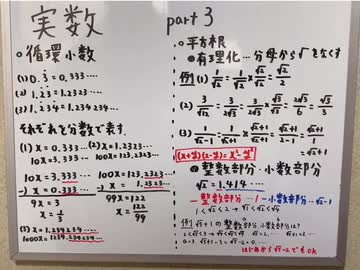 実数 part 3
○循環小数
(1) 0.3̇ = 0.333‥‥
(2) 1.2̇3̇ = 1.2323‥‥
(3) 1.2̇34̇ = 1.234234‥‥
それぞれを分数で表す
(1) x = 0.333‥‥
10x = 3.333‥‥
10x = 3.333‥‥
-) x = 0.333‥‥
9x = 3
x = 1/3
(2) x = 1.2323‥‥
100x = 123.2323‥‥
100x = 123.2323‥‥
-) x = 1.2323‥‥
99x = 122
x = 122/99
(3) x = 1.234234‥‥
1000x = 1234.234234‥‥
○平方根
●有理化‥‥分母から√をなくす
例 (1) 1/√2 = 1/√2 × √2/√2 = √2/2
(2) 3/√12 = 3/2√3 = 3/2√3 × √3/√3 = 3√3/6 = √3/2
(3) 1/√2-1 = 1/√2-1 × √2+1/√2+1 = √2+1/2-1 = √2+1/1
= √2+1
(x+y)(x-y) = x²-y²
●整数部分・小数部分
√2 = 1.414‥‥
整数部分‥‥1 小数部分‥‥√2-1
1<√2<2 → √1<√2<√4
例 √5+1の整数部分, 小数部分は?
はじめから√5-2でもOK